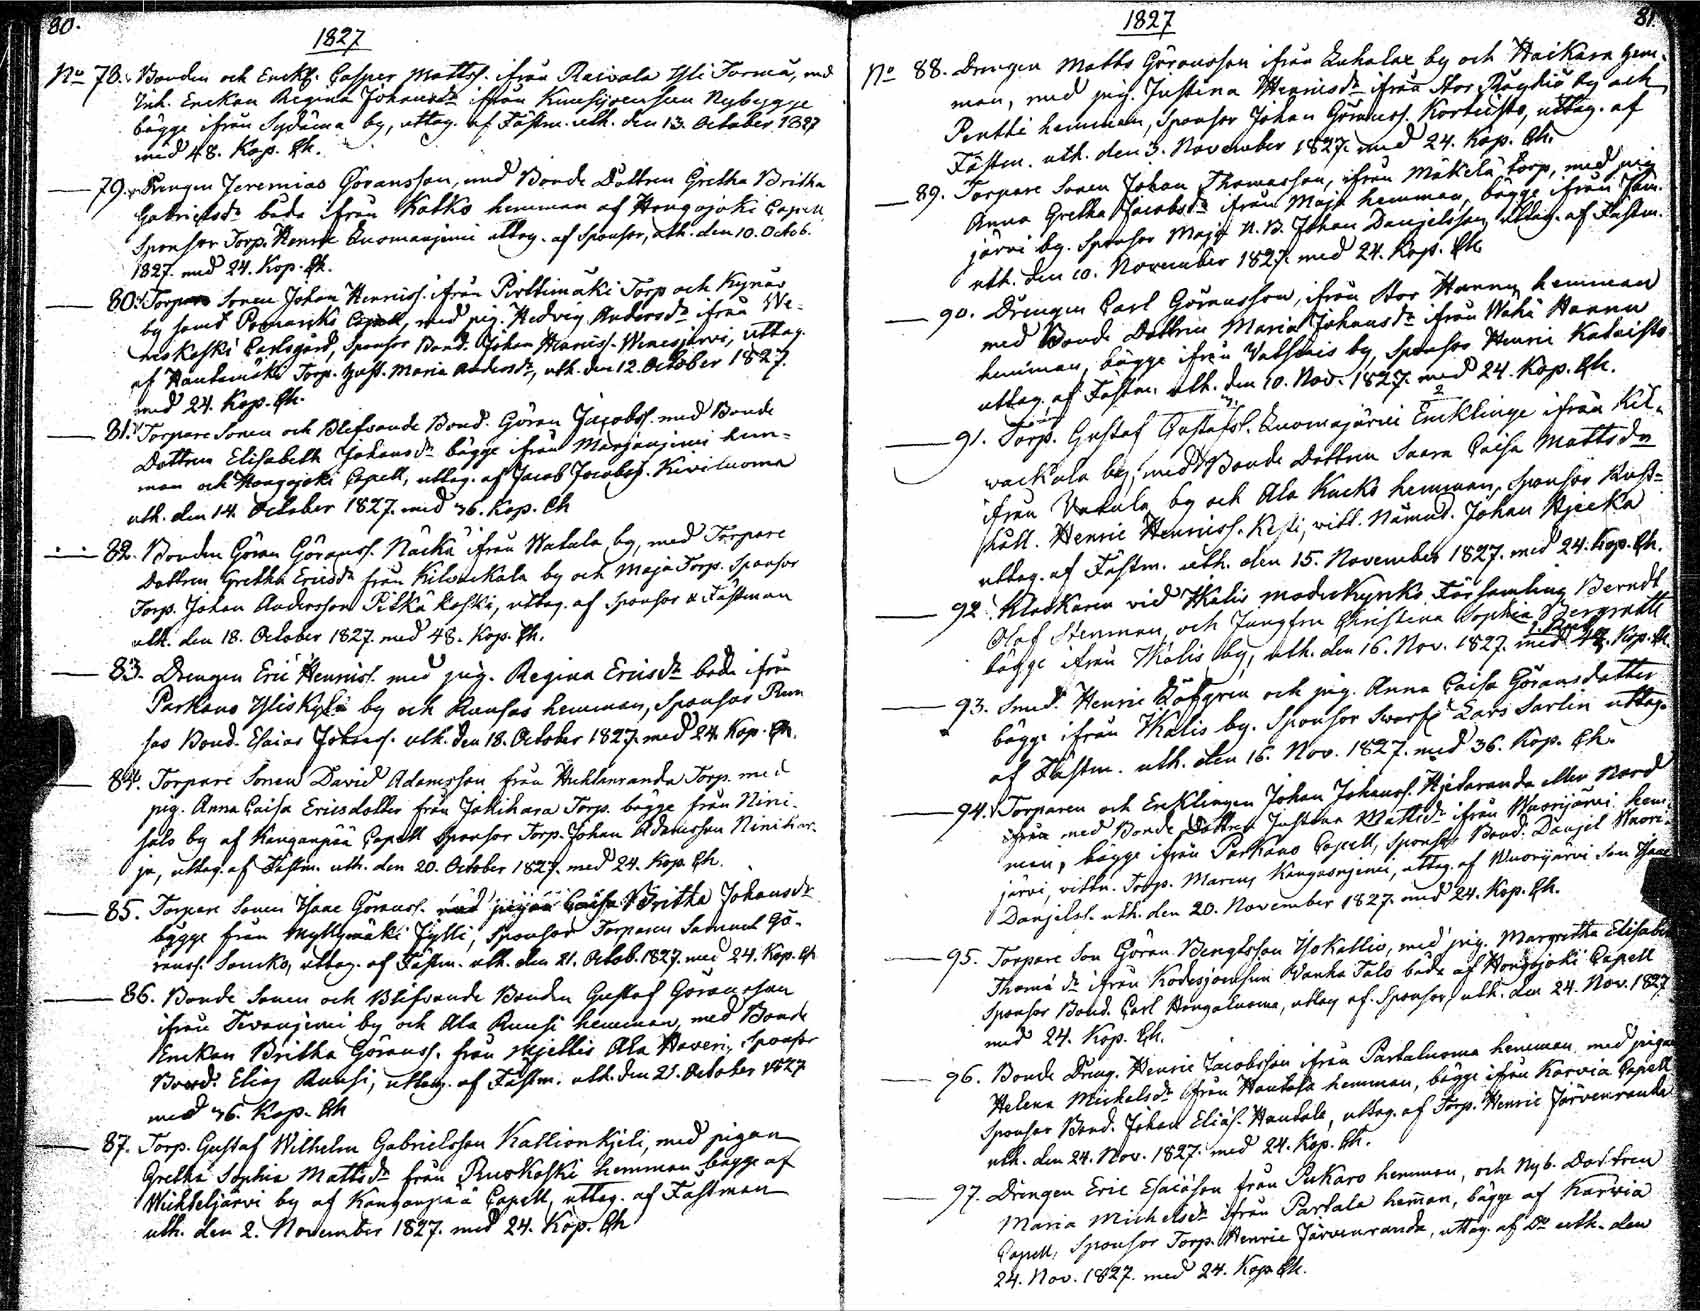 80.
1827
No 78. Bonden och Enckl. Casper Mattss. ifrån Raivala Yli Tormä, med
Inh. Enckan Regina Johansdr ifrån Nybygge
bägge ifrån Sydänma by, uttag. af Fästm. uth. den 13. October 1827
med 48. Kop. Ch.
79. Drengen Jeremias Göransson, med Bonde Dottren Gretha Britha
Gabrielsdr båda ifrån Katko hemman af Hongojoki Capell
Sponsor Torp. Henric Luomanjemi uttag. af Sponsor, uth. den 10. Octob.
1827. med 24. Kop. Ch.
80. Torpare Sonen Johan Henricss. ifrån Pirttimäki Torp och Kynäs
by samt Pomarcks Capell, med pig. Hedvig Andersdr ifrån We-
neskoski Carlsgård, Sponsor Bond. Johan Henricss. Wenesjärvi, uttag.
af Hautamäki Torp. Hust. Maria Andersdr, uth. den 12. October 1827.
med 24. Kop. Ch.
81. Torpare Sonen och Blifvande Bond. Göran Jacobss. med Bonde
Dottren Elisabeth Johansdr bägge ifrån Marjanjemi hem-
man och Hongojoki Capell, uttag. af Jacob Jacobss. Kiviluoma
uth. den 14. October 1827. med 36. Kop. Ch
82. Bonden Göran Göranss. Näckä ifrån Watula by, med Torpare
Dottren Gretha Ericsdr från Kilwackala by och Maja Torp. Sponsor
Torp. Johan Andersson Pitkäkoski, uttag. af Sponsor & Fästman
uth. den 18. October 1827. med 48. Kop. Ch.
83. Drengen Eric Henricss. med pig. Regina Ericsdr båda ifrån
Parkano Yliskylä by och Runsas hemman, Sponsor Run
sas Bond. Esaias Johanss. uth. den 18. October 1827. med 24. Kop. Ch.
84. Torpare Sonen David Adamsson från Huhtanranda Torp. med
pig. Anna Caisa Ericsdotter från Jakkihara Torp. bägge från Nini-
salo by af Kanganpää Capell Sponsor Torp. Johan Adamsson Ninihar-
ju, uttag. af Fästm. uth. den 20. October 1827. med 24. Kop. Ch.
85. Torpare Sonen Isaac Göranss. med pigan Caisa Britha Johansdr
bägge från Myllymäki Jylli, Sponsor Torparen Samuel Gö-
ranss. Soucko, uttag. af Fästm. uth. den 21. Octob. 1827. med 24. Kop. Ch
86. Bonde Sonen och Blifvande Bonden Gustaf Göransson
ifrån Tevanjemi by och Ala Ruusi hemman, med Bonde
Enckan Britha Göranss. från Mjettis Ala Haveri, Sponsor
Bond. Elias Ruusi, uttag. af Fästm. uth. den 21. October 1827
med 36. Kop. Ch
87. Torp. Gustaf Wilhelm Gabrielsson Kallionkjeli, med pigan
Gretha Sophia Mattsdr från Ruoskoski hemman bägge af
Wichteljärvi by af Kanganpää Capell, uttag. af Fästman
uth. den 2. November 1827. med 24. Kop. Ch
81.
1827
No 88. Drengen Matts Göransson ifrån Luhalax by och Haikara hem-
man, med pig. Justina Henricsdr ifrån Stor Röyhiö by och
Pentti hemman, Sponsor Johan Göranss. Kortensto, uttag. af
Fästm. uth. den 3. November 1827. med 24. Kop. Ch.
89. Torpare Sonen Johan Thomasson, ifrån Mäkelä torp, med pig
Anna Gretha Jacobsdr ifrån Maja hemman, bägge ifrån Jäm-
järvi by. Sponsor Maja N. B. Johan Danjelsson, uttag. af Fästm.
uth. den 10. November 1827. med 24. Kop. Ch
90. Drengen Carl Göransson, ifrån Stor Hannu hemman
med Bonde Dottren Maria Johansdr ifrån Wähä Hannu
hemman, bägge ifrån Vatsiais by, Sponsor Henric Kataisto
uttag. af Fästm. uth. den 10. Nov. 1827. med 24. Kop. Ch.
91. Torp. Gustaf Gustafss. Luomajärvi Encklinge ifrån Kil-
wackala by, med Bonde Dottren Saara Caisa Mattsdr
ifrån Vatula by och Ala Kucko hemman, Sponsor Rust-
håll. Henric Henricss. Kesti, vitt. Nämnd. Johan Hjecka
uttag. af Fästm. uth. den 15. November 1827. med 24. Kop. Ch.
92. Klockaren vid Ikalis moderkyrko Församling Berndt
Olof Stenman, och Jungfru Christina Sophia Bergroth
bägge ifrån Ikalis by, uth. den 16. Nov. 1827. med 48. Kop. Ch.
93. Smed. Henric Löfgren och pig. Anna Caisa Göransdotter
bägge ifrån Ikalis by. Sponsor Lars Sarlin uttag.
af Fästm. uth. den 16. Nov. 1827. med 36. Kop. Ch.
94. Torparen och Encklingen Johan Johanss. Hjedaranda eller Nord
med Bonde Dottren Justina Mattsdr ifrån Wuorijärvi hem-
man, bägge ifrån Parkano Capell, Sponsor Bond. Danjel Wuori-
järvi, vittn. Torp. Marcus Kangasnjemi, uttag. af Wuorijärvi Son Isaac
Danjelss. uth. den 20. November 1827. med 24. Kop. Ch.
95. Torpare Son Göran Bengtsson Isokallio, med pig. Margretha Elisabet
Thomædr ifrån Kodesjoensuu Wanha Talo båda af Hongojoki Capell
Sponsor Bond. Carl Hongoluoma, uttag. af Sponsor, uth. den 24. Nov. 1827
med 24. Kop. Ch.
96. Bonde Dreng. Henric Jacobsson ifrån Partaluoma hemman med pigan
Helena Michelsdr ifrån Hautala hemman, bägge ifrån Karvia Capell
Sponsor Bond. Johan Eliass. Hautala, uttag. af Torp. Henric Järvenranda
uth. den 24. Nov. 1827. med 24. Kop. Ch.
97. Drengen Eric Esaiason från Pukaro hemman, och Nyb. Dottren
Maria Michelsdr ifrån Partala heman, bägge af Karvia
Capell, Sponsor Torp. Henric Järvenranda, uttag. af Do uth. den
24. Nov. 1827. med 24. Kop. Ch.